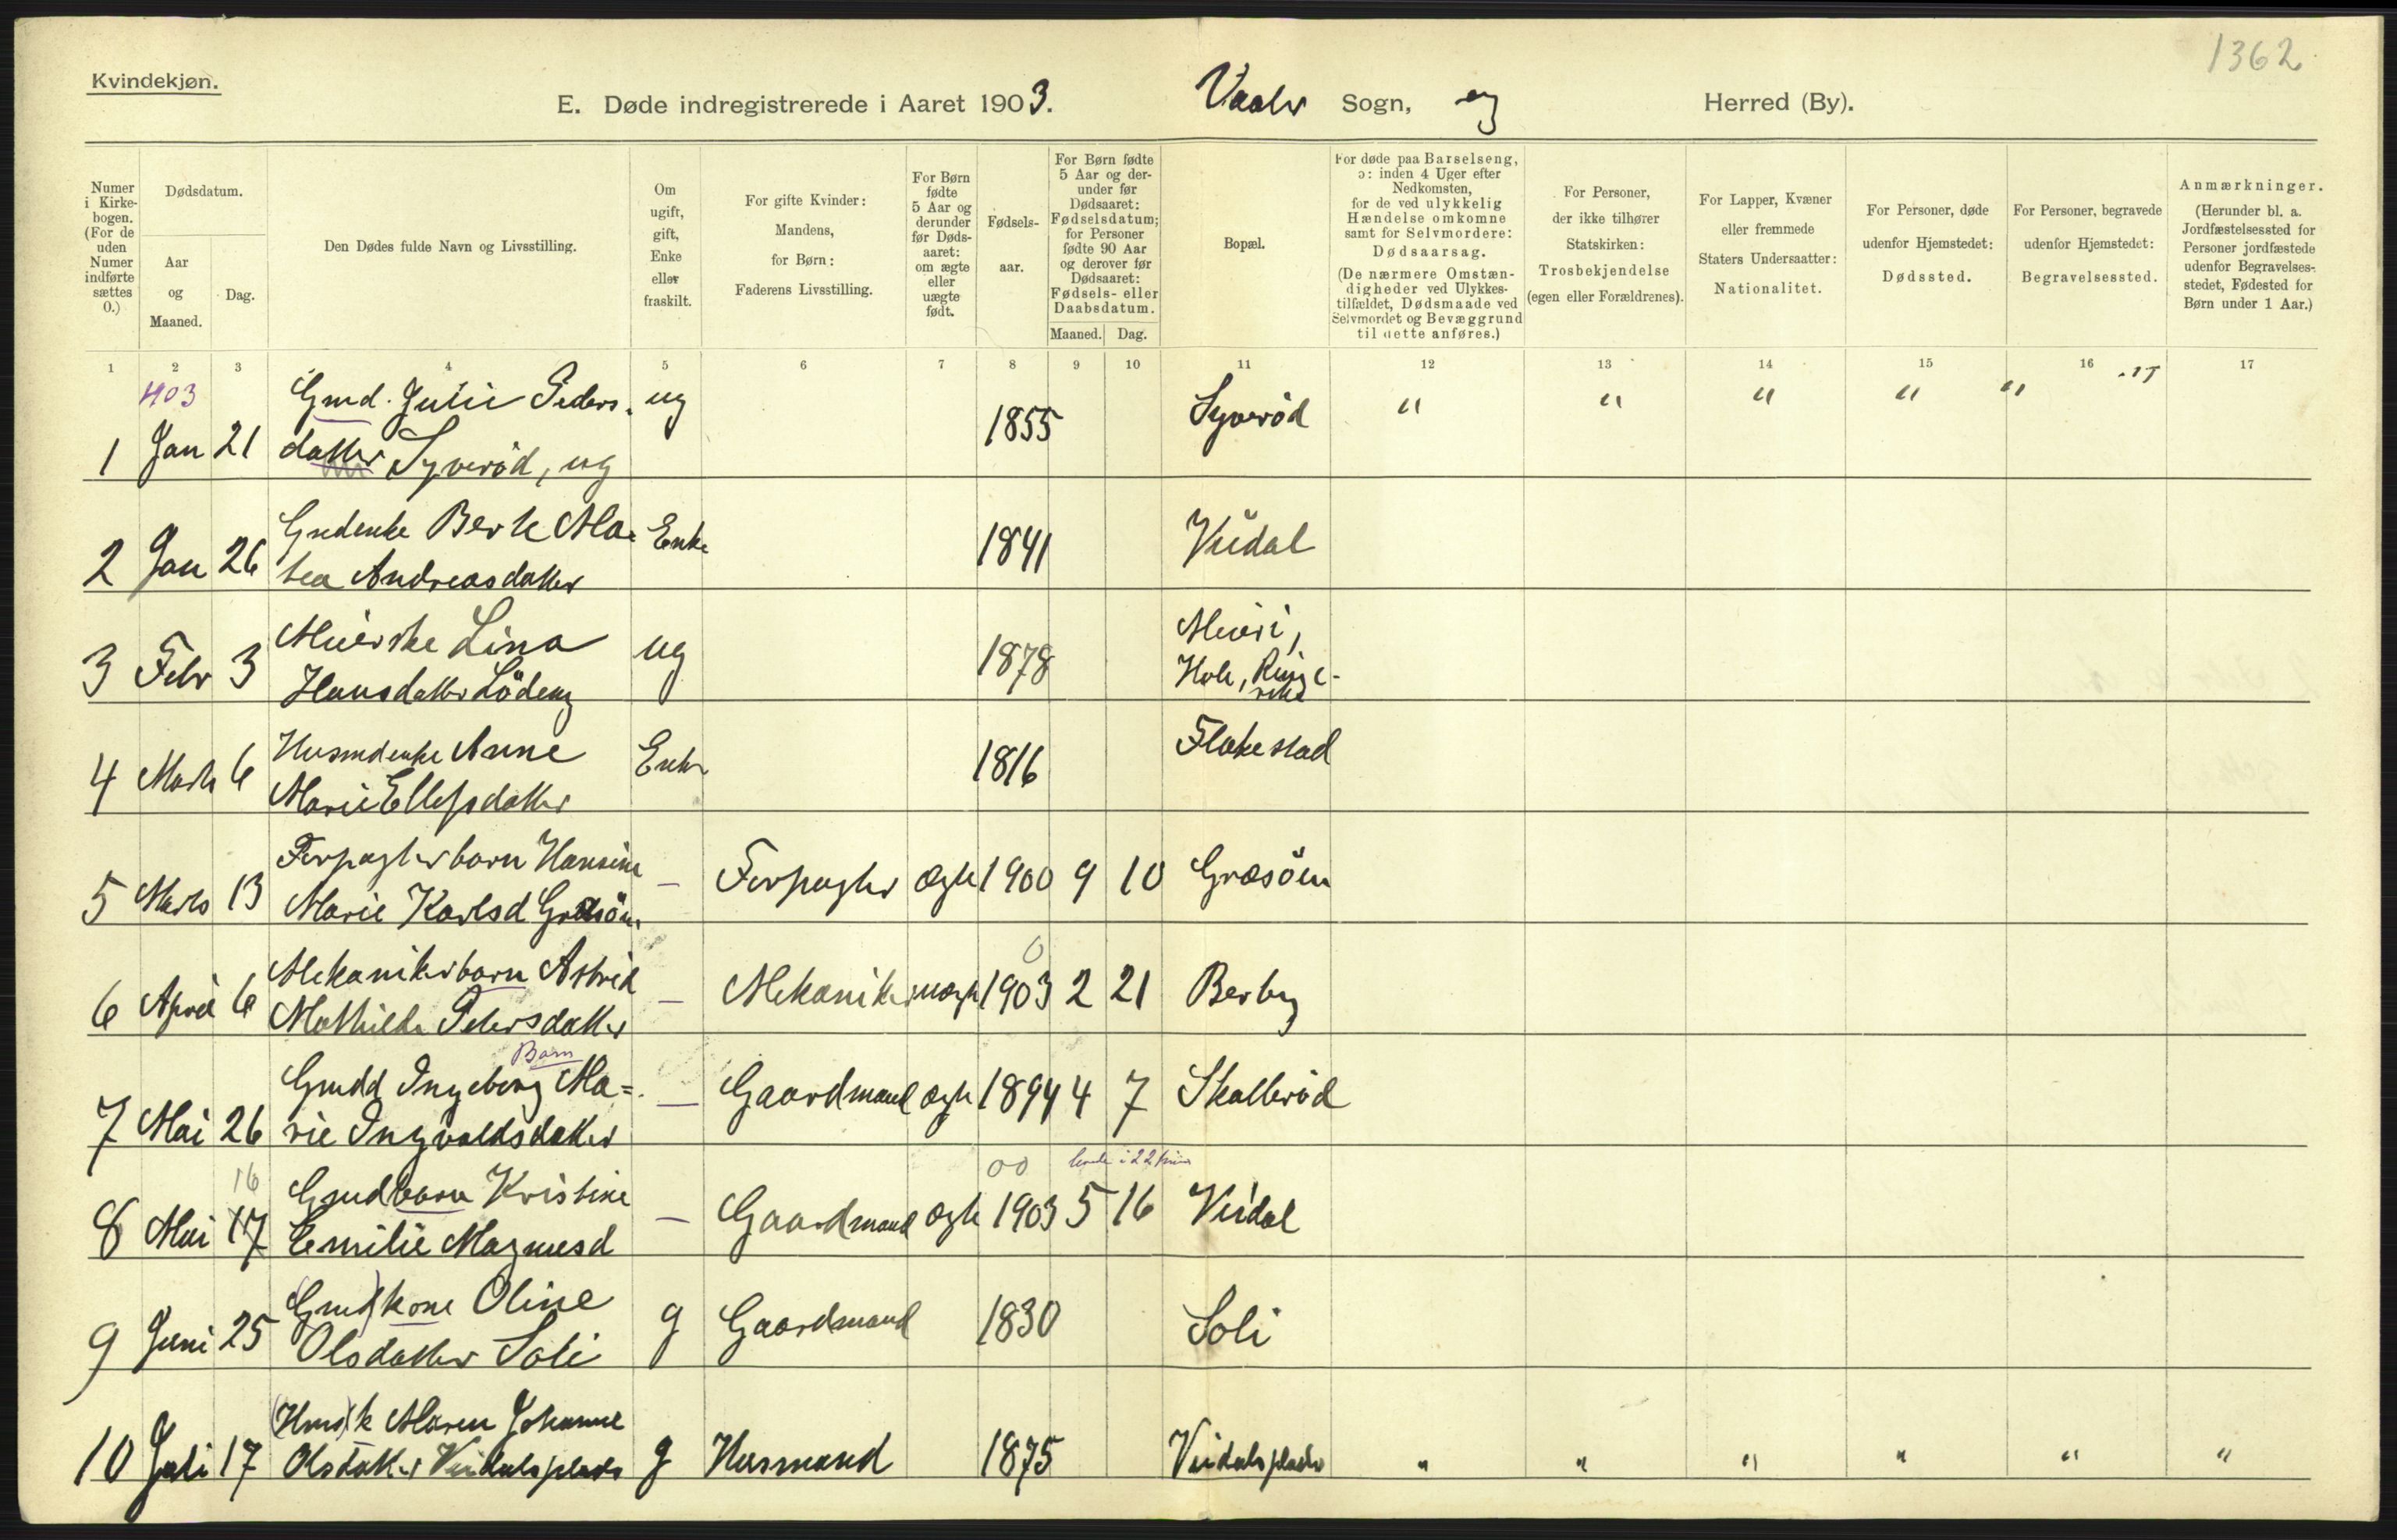 1362
Kvindekjøn.
E. Døde indregistrerede i Aaret 1903. Vaaler Sogn, og Herred (By).
Numer i Kirkebogen. (For de uden Numer indførte sættes 0.)
Dødsdatum.
Aar og Maaned.
Dag.
Den Dødes fulde Navn og Livsstilling.
Om ugift, gift, Enke eller fraskilt.
For gifte Kvinder: Mandens, for Børn: Faderens Livsstilling.
For Børn fødte 5 Aar og derunder før Dødsaaret: om ægte eller uægte født.
Fødselsaar.
For Børn fødte 5 Aar og derunder før Dødsaaret: Fødselsdatum; for Personer fødte 90 Aar og derover før Dødsaaret: Fødsels- eller Daabsdatum.
Maaned. Dag.
Bopæl.
For døde paa Barselseng, ɔ: inden 4 Uger efter Nedkomsten, for de ved ulykkelig Hændelse omkomne samt for Selvmordere: Dødsaarsag. (De nærmere Omstændigheder ved Ulykkestilfældet, Dødsmaade ved Selvmordet og Bevæggrund til dette anføres.)
For Personer, der ikke tilhører Statskirken: Trosbekjendelse (egen eller Forældrenes).
For Lapper, Kvæner eller fremmede Staters Undersaatter: Nationalitet.
For Personer, døde udenfor Hjemstedet: Dødssted.
For Personer, begravede udenfor Hjemstedet: Begravelsessted.
Anmærkninger. (Herunder bl. a. Jordfæstelsessted for Personer jordfæstede udenfor Begravelsesstedet, Fødested for Børn under 1 Aar.)
1 2 3 4 5 6 7 8 9 10 11 12 13 14 15 16 17
1903 Gmd. Julie Peders- ug 1855 Syverød " " " " " "
1 Jan 21 datter Syverød, ug
Gmdenke Berte Ma- Enke 1841 Viidal
2 Jan 26 tea Andreasdatter
Meierske Lina ug 1878 Meieri,
3 Febr 3 Hansdatter Lödeng Hole, Ringe-
rike
Husmdenke Anne Enke 1816 Flakestad
4 Marts 6 Marie Ellefsdatter
Forpagterbarn Hansine — Forpagter ægte 1900 9 10 Græsöen
5 Marts 13 Marie Karlsd Græsöen
0
Mekanikerbarn Astrid — Mekaniker uægte 1903 2 21 Berby
6 April 6 Mathilde Petersdatter
Barn
Gmdd Ingeborg Ma= — Gaardmand ægte 1894 4 7 Skallerød
7 Mai 26 rie Ingvaldsdatter
16 00 levede i 22 timer
Gmdbarn Kristine — Gaardmand ægte 1903 5 16 Viidal
8 Mai 17 Emilie Magnusd
(Gmd)kone Oline g Gaardmand 1830 Soli
9 Juni 25 Olsdatter Soli
(Hus)k Maren Johanne
10 Juli 17 Olsdatter Viidalsplads g Husmand 1875 Viidalsplads " " " " " "